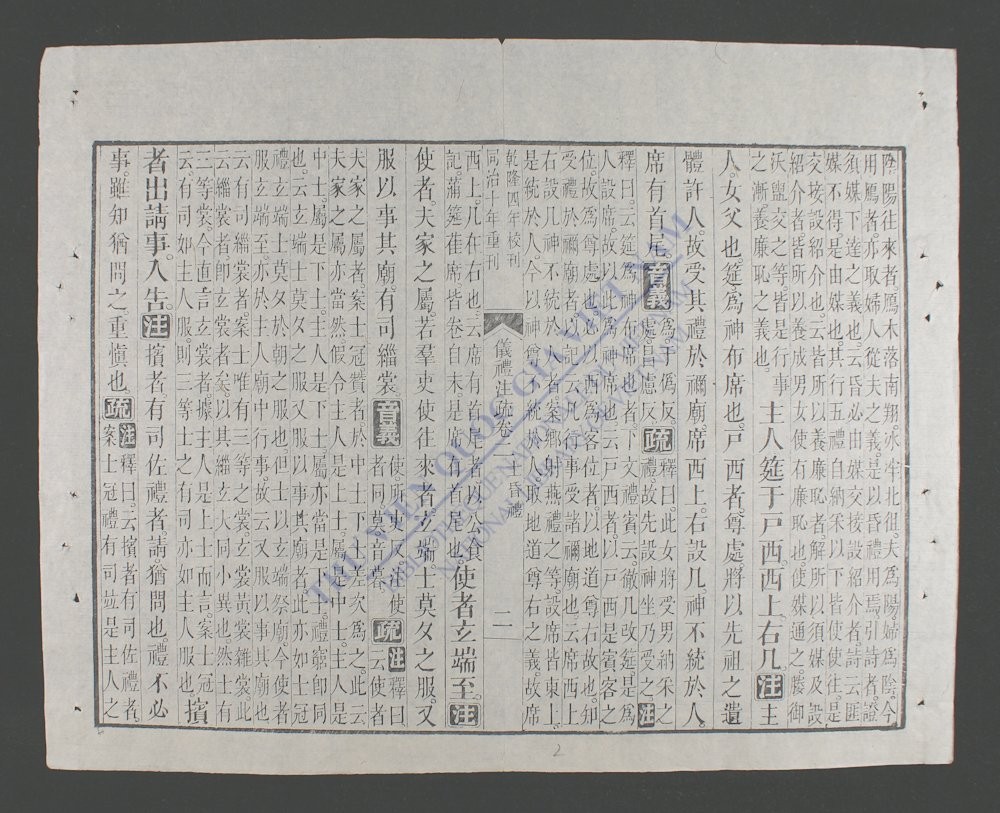 陰陽往來者鴈木落南翔冰泮北徂夫為陽婦為陰今
用鴈者亦取婦人從夫之義是以昏禮用焉引詩者證
須媒下達之義也云昏必由媒交接設紹介者詩云匪
媒不得是由媒也其行五禮自納采以下皆使使往是
交接設紹介也云皆所以養廉恥者解所以須媒及設
紹介者皆所以養成男女使有廉恥也使媒通之媵御
沃盥交之等皆是行事
之漸養廉恥之義也
主人筵于戶西西上右几。注主
人。女父也。筵為神布席也。戶西者。尊處。將以先祖之遺
體許人。故受其禮於禰廟。席西上。右設几。神不統於人。
席有首尾。音義
為。于偽反。
處。昌慮反
疏
釋曰。此女將受男納采之
禮。故先設神坐乃受之
注
釋曰。云筵為神布席也者。下文禮賓云。徹几改筵。是為
人設席。故以此為神席也。云戶西者。以戶西是賓客之
位。故為尊處也。必以西為客位者。以地道尊右故也。知
受禮於禰廟者。以記云。凡行事受諸禰廟也。云席西上
右設几。神不統於人者。案鄉射燕禮之等。設席皆東上
是統於人。今以神尊不統於人。取地道尊右之義。故席
乾隆四年校刊
同治十年重刊
儀禮注疏卷二 士昏禮
二
西上。几在右也。云席有首尾者。以公食
記。蒲筵萑席皆卷自末。是席有首尾也
使者玄端至。注
使者。夫家之屬。若羣吏使往來者。玄端。士莫夕之服。又
服以事其廟。有司緇裳。音義
使。所吏反。注同。使
者同。莫音暮
疏
注釋曰
云使者
夫家之屬者。案士冠贊者於中士下士差次為之。此云
夫家之屬亦當然。假令主人是上士。屬是中士。主人是
中士。屬是下士。主人是下士。屬亦當是下士。禮窮即同
也。云玄端士莫夕之服又服以事其廟者。此亦如士冠
禮玄端士莫夕於朝之服也。但士以玄端祭廟。今使者
服玄端至。亦於主人廟中行事。故云又服以事其廟也
云有司緇裳者。案士唯有三等之裳。玄裳黃裳雜裳。此
云緇裳者。即玄裳者矣。以其緇玄大同小異也。然士有
三等裳。今直言玄裳者。據主人是上士而言。案士冠云
云有司如主人服。則三等士之有司亦如主人服也
擯
者出請事。入告。注擯者。有司佐禮者。請猶問也。禮不必
事。雖知猶問之。重慎也。疏
注釋曰。云擯者有司佐禮者。
案士冠禮有司並是主人之
THƯ VIỆN QUỐC GIA VIỆT NAM
NATIONAL LIBRARY OF VIETNAM
2